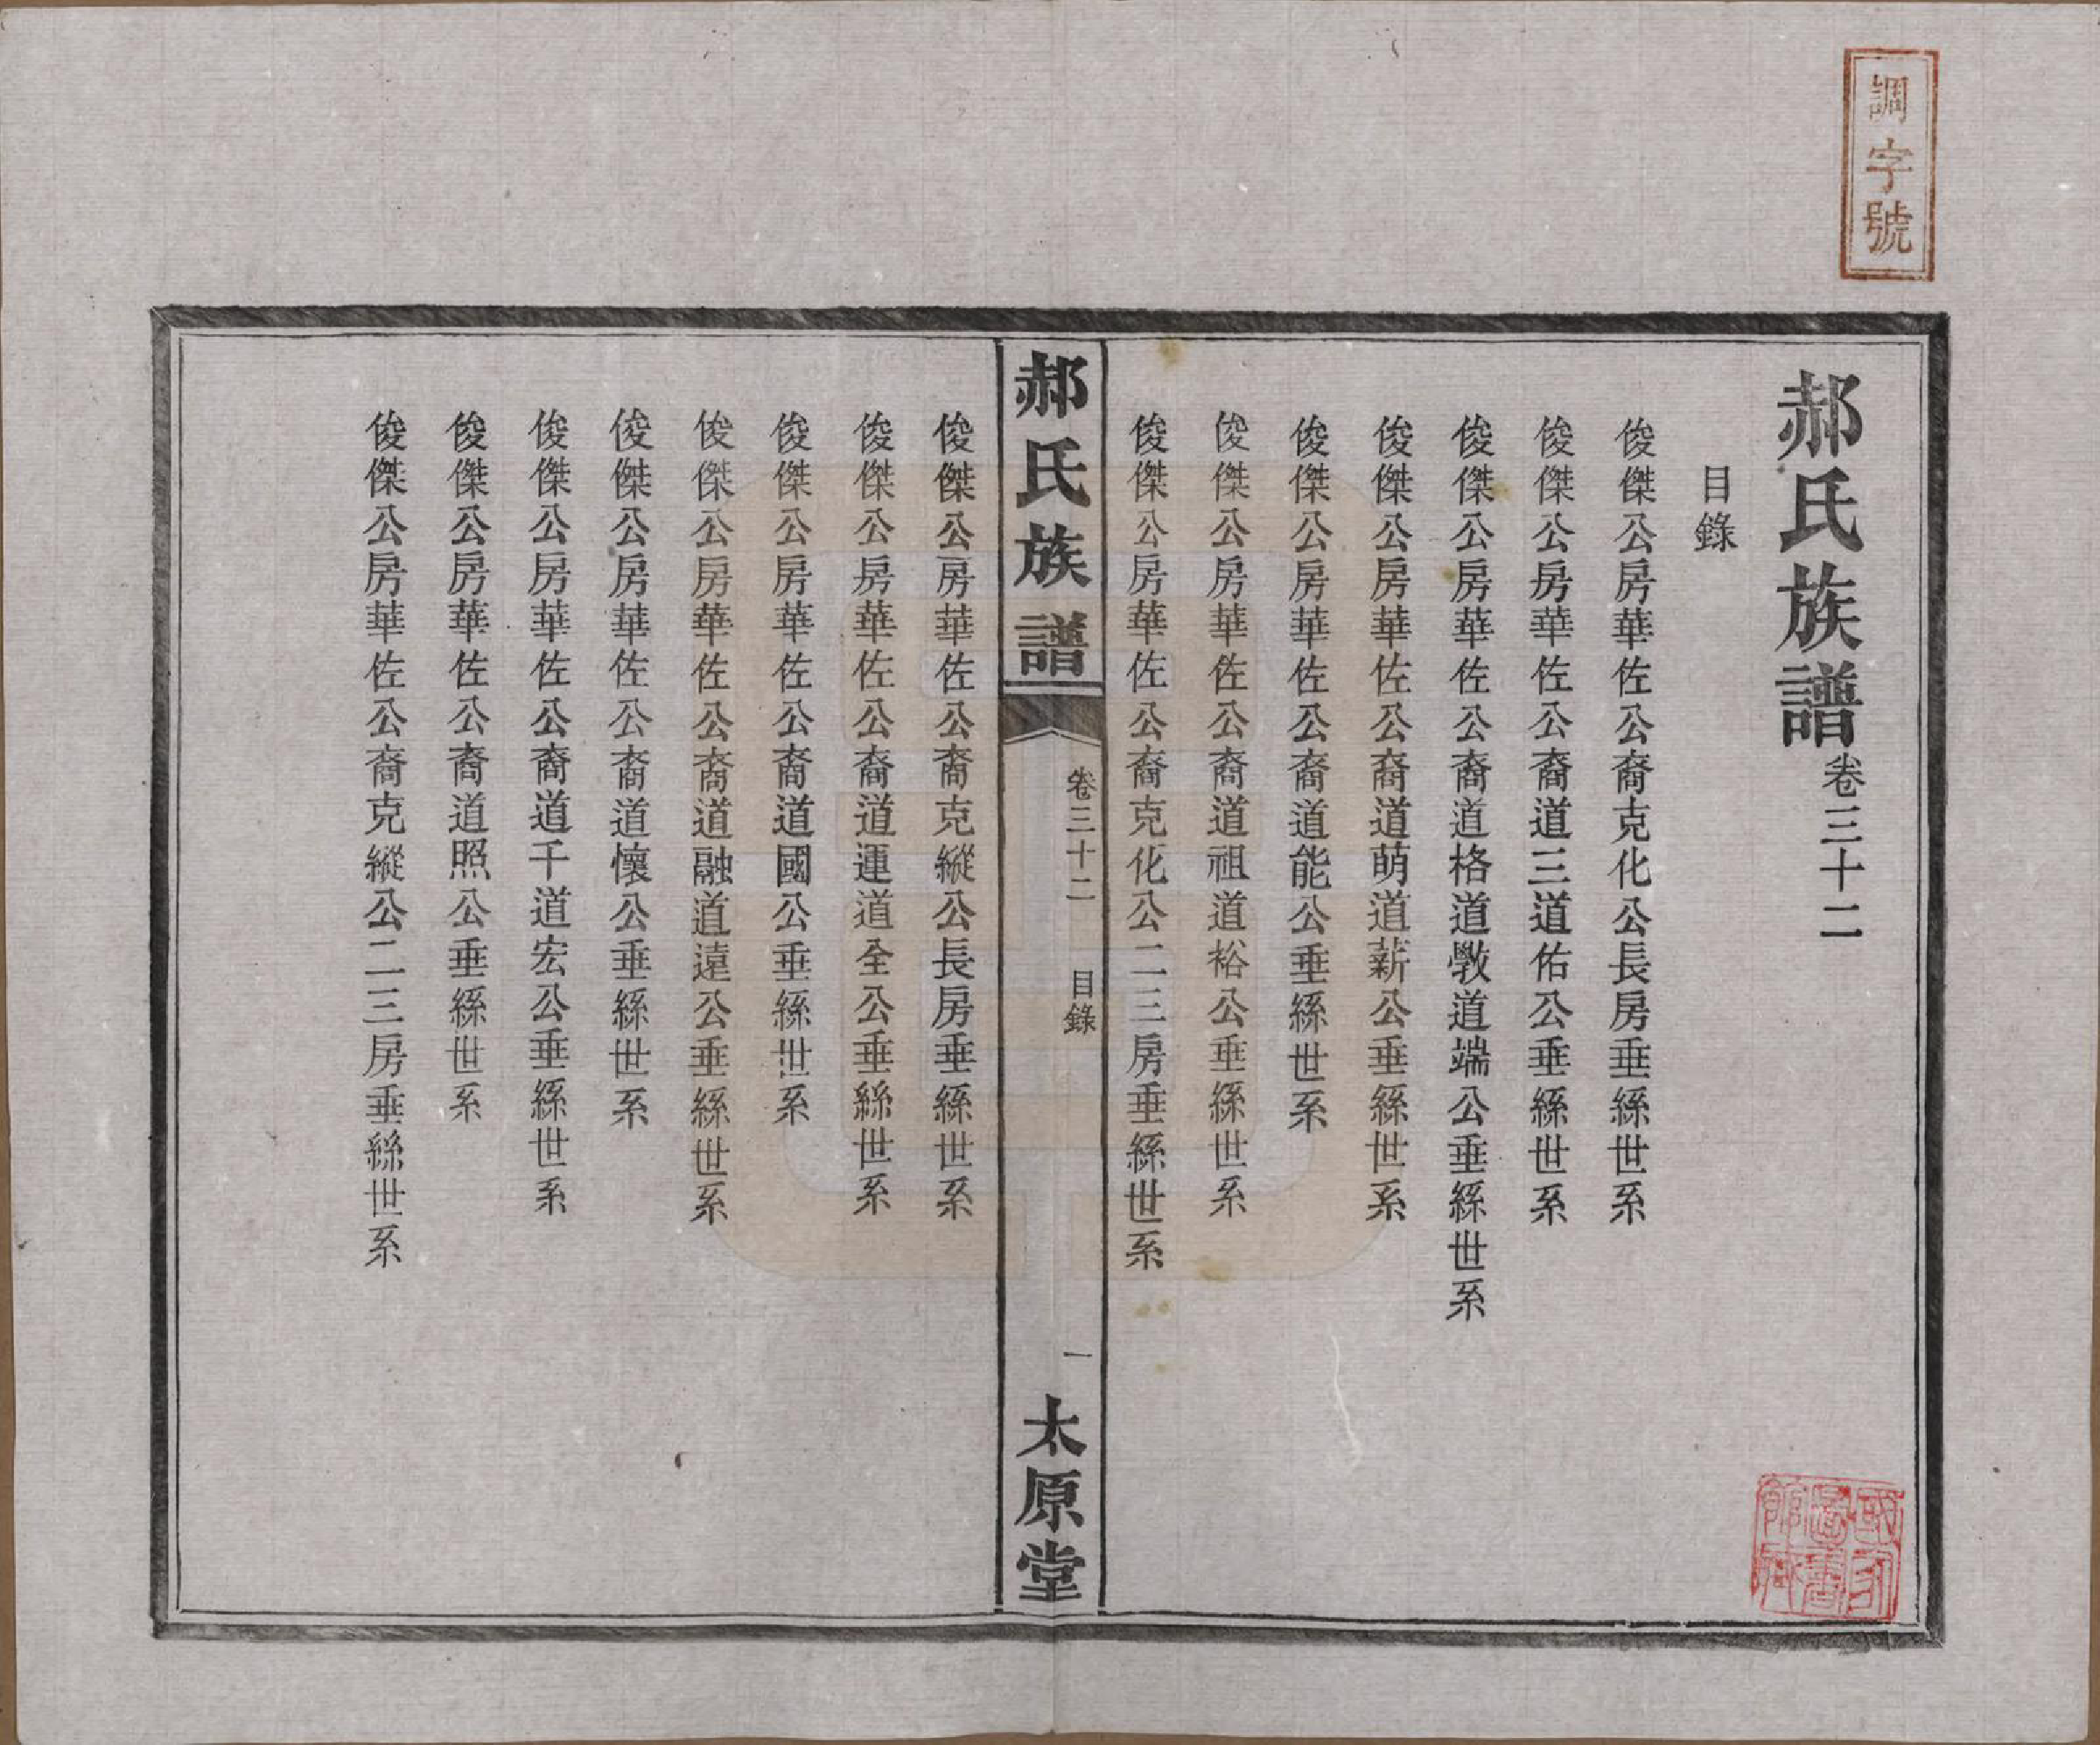 調字號
郝氏族譜卷三十二
目錄
俊傑公房華佐公裔克化公長房垂絲世系
俊傑公房華佐公裔道三道佑公垂絲世系
俊傑公房華佐公裔道格道斆道端公垂絲世系
俊傑公房華佐公裔道萌道薪公垂絲世系
俊傑公房華佐公裔道能公垂絲世系
俊傑公房華佐公裔道祖道裕公垂絲世系
俊傑公房華佐公裔克化公二三房垂絲世系
郝氏族譜
卷三十二
目錄
一
太原堂
俊傑公房華佐公裔克縱公長房垂絲世系
俊傑公房華佐公裔道運道全公垂絲世系
俊傑公房華佐公裔道國公垂絲世系
俊傑公房華佐公裔道融道遠公垂絲世系
俊傑公房華佐公裔道懷公垂絲世系
俊傑公房華佐公裔道千道宏公垂絲世系
俊傑公房華佐公裔道照公垂絲世系
俊傑公房華佐公裔克縱公二三房垂絲世系